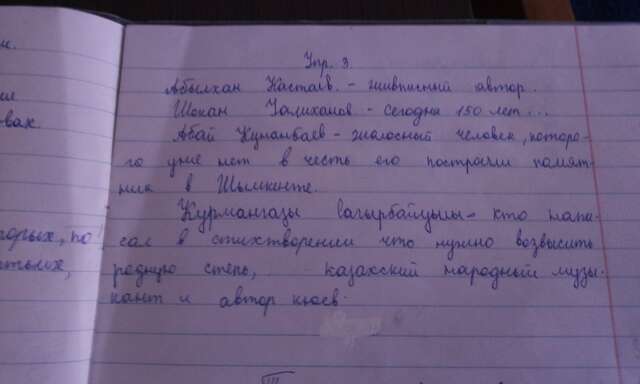 м.
Упр. 3.
Абылхан Кастаев. - живписный автор.
Шокан Уалиханов - сегодня 150 лет...
вах
Абай Кунанбаев - человек, которо-
го уже нет в честь его построили памят-
ник в Шымкенте.
Курмангазы - кто напи-
торых, по
сал в стихтворении что нужно возвысить
родную степь, казахский народный музы-
кант и автор кюев.
III